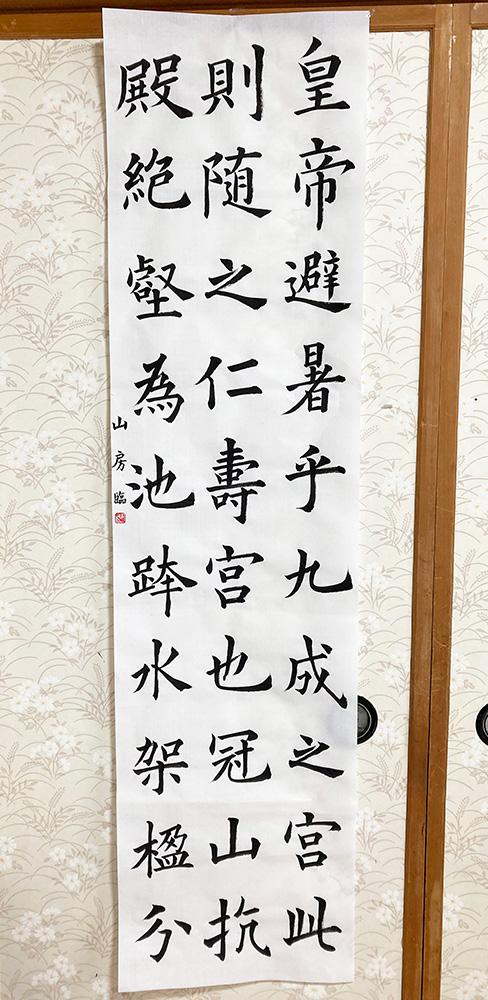 皇帝避暑乎九成之宮此
則随之仁壽宮也冠山抗
殿絶壑為池跨水架楹分
山房臨